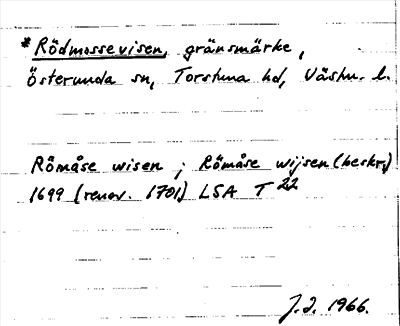 *Rödmossevisen, gränsmärke,
Österunda sn, Torstuna hd, Västm. l.
Römåse wisen ; Römåse wijsen (beskr.)
1699 (renov. 1701) LSA T 22
J.I. 1966.